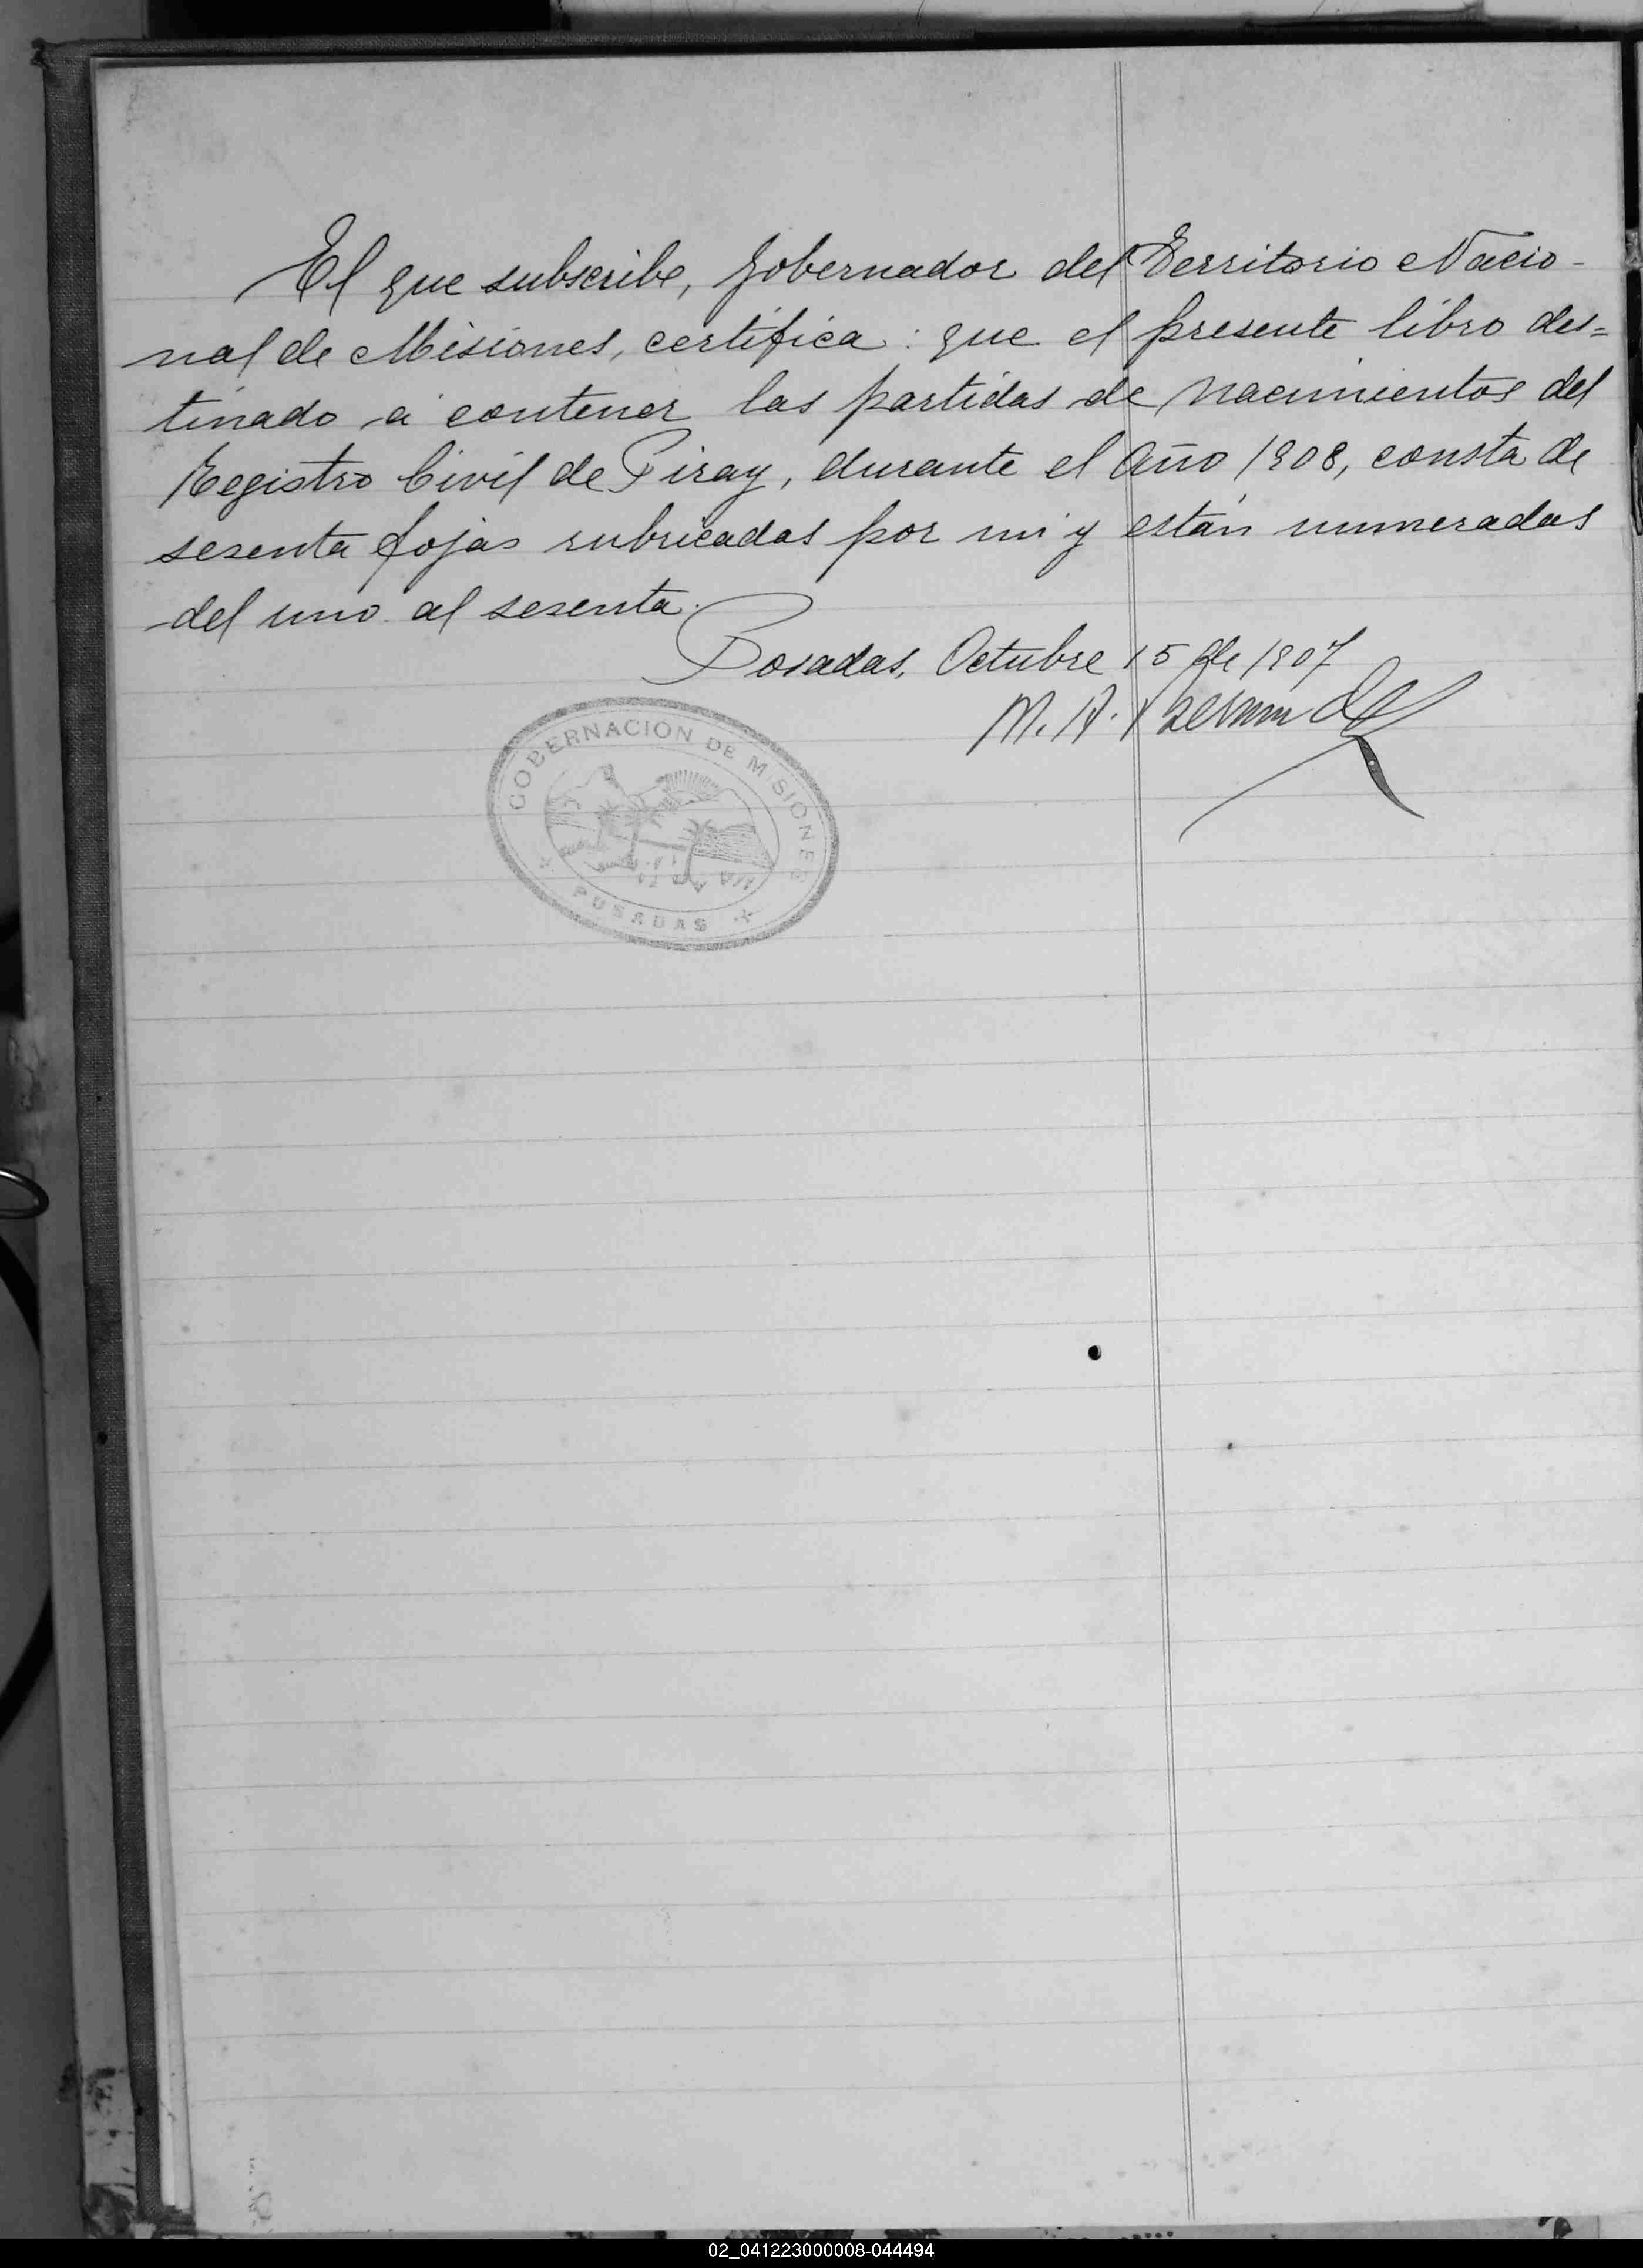 El que subscribe, Gobernador del Territorio Nacio-
nal de Misiones, certifica: que el presente libro des=
tinado á contener las partidas de Nacimientos del
Registro Civil de Piray, durante el Año 1908, consta de
sesenta fojas rubricadas por mi y están numeradas
del uno al sesenta.
Posadas, Octubre 15 de 1907
M. A.
GOBERNACION DE MISIONES
POSADAS
02_041223000008-044494